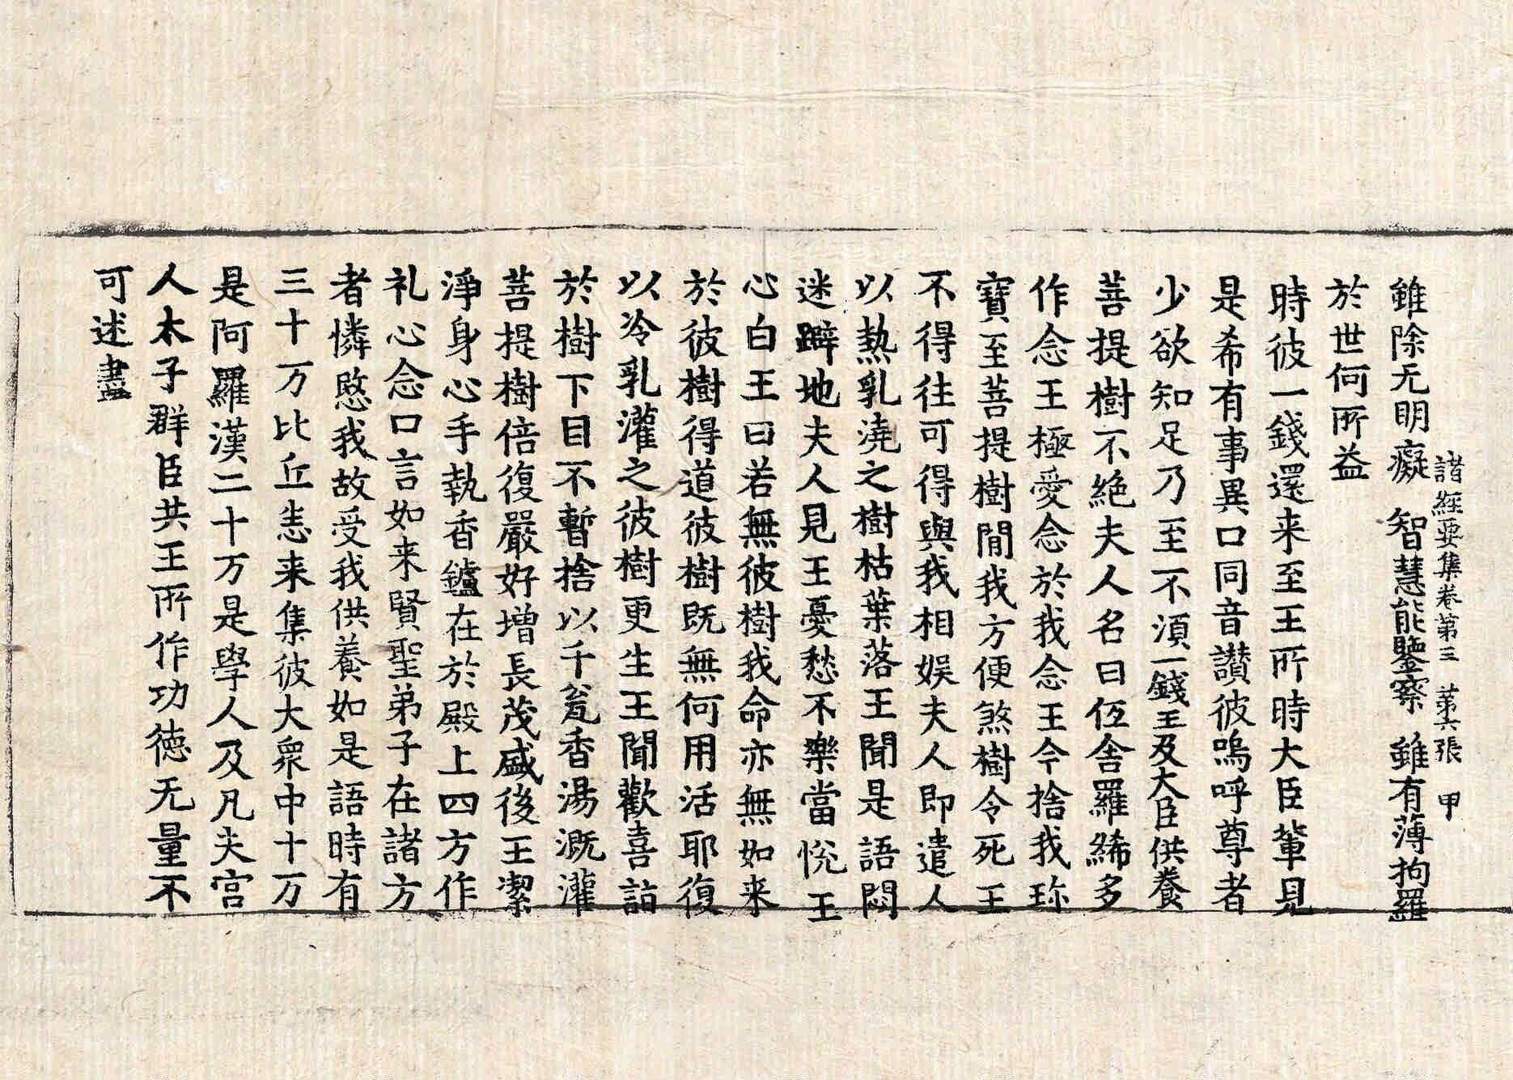 諸經要集卷第三　第六張　甲
雖除无明癡　智慧能鑒察　雖有薄拘羅
於世何所益
時彼一錢還来至王所時大臣輩見
是希有事異口同音讃彼嗚呼尊者
少欲知足乃至不須一錢王及大臣供養
菩提樹不絶夫人名曰伍舍羅絺多
作念王極愛念於我念王今捨我珎
寶至菩提樹閒我方便煞樹令死王
不得往可得與我相娛夫人即遣人
以熱乳澆之樹枯葉落王聞是語悶
迷躃地夫人見王憂愁不樂當悅王
心白王曰若無彼樹我命亦無如来
於彼樹得道彼樹既無何用活耶復
以冷乳灌之彼樹更生王聞歡喜詣
於樹下目不暫捨以千瓮香湯溉灌
菩提樹倍復嚴好增長茂盛後王潔
淨身心手執香鑪在於殿上四方作
礼心念口言如来賢聖弟子在諸方
者憐愍我故受我供養如是語時有
三十万比丘悉来集彼大衆中十万
是阿羅漢二十万是學人及凡夫宮
人太子群臣共王所作功德无量不
可述盡